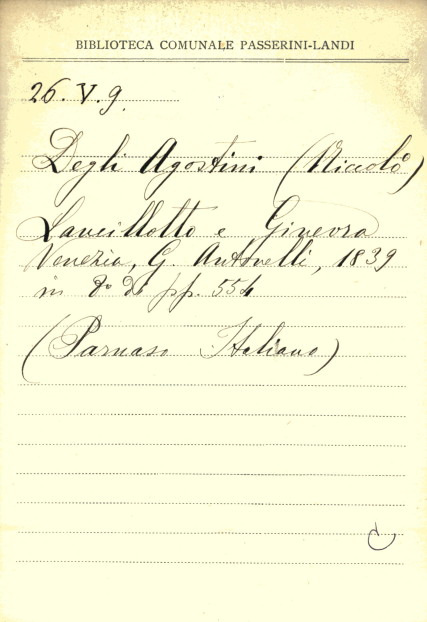 BIBLIOTECA COMUNALE PASSERINI-LANDI
26. V. 9.
Degli Agostini (Niccolò)
Lancillotto e Ginevra
Venezia, G. Antonelli, 1839
in 8° di pp. 554
(Parnaso Italiano)
C